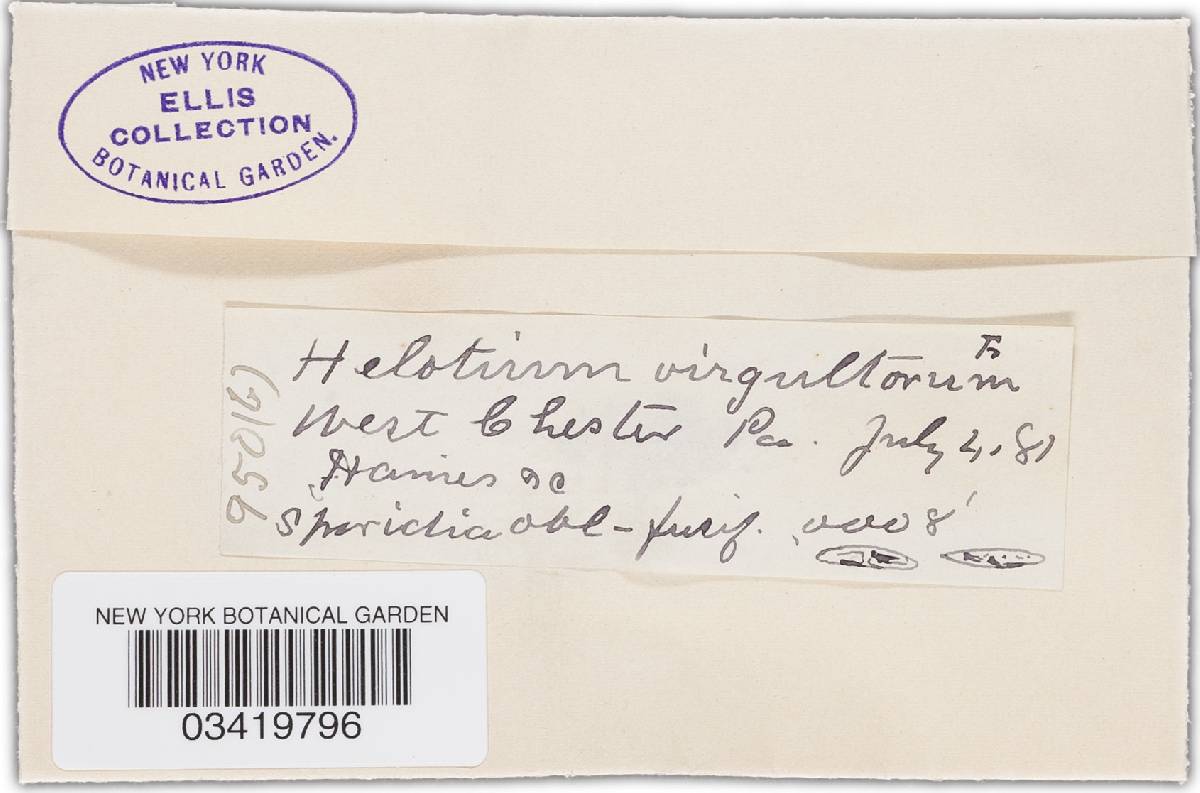 NEW YORK
ELLIS
COLLECTION
BOTANICAL GARDEN.
Helotium virgultorum Fr
West Chester Pa. July 4, 81
Haines
Sporidia obl-fusif. .0008'
950(6)
NEW YORK BOTANICAL GARDEN
03419796